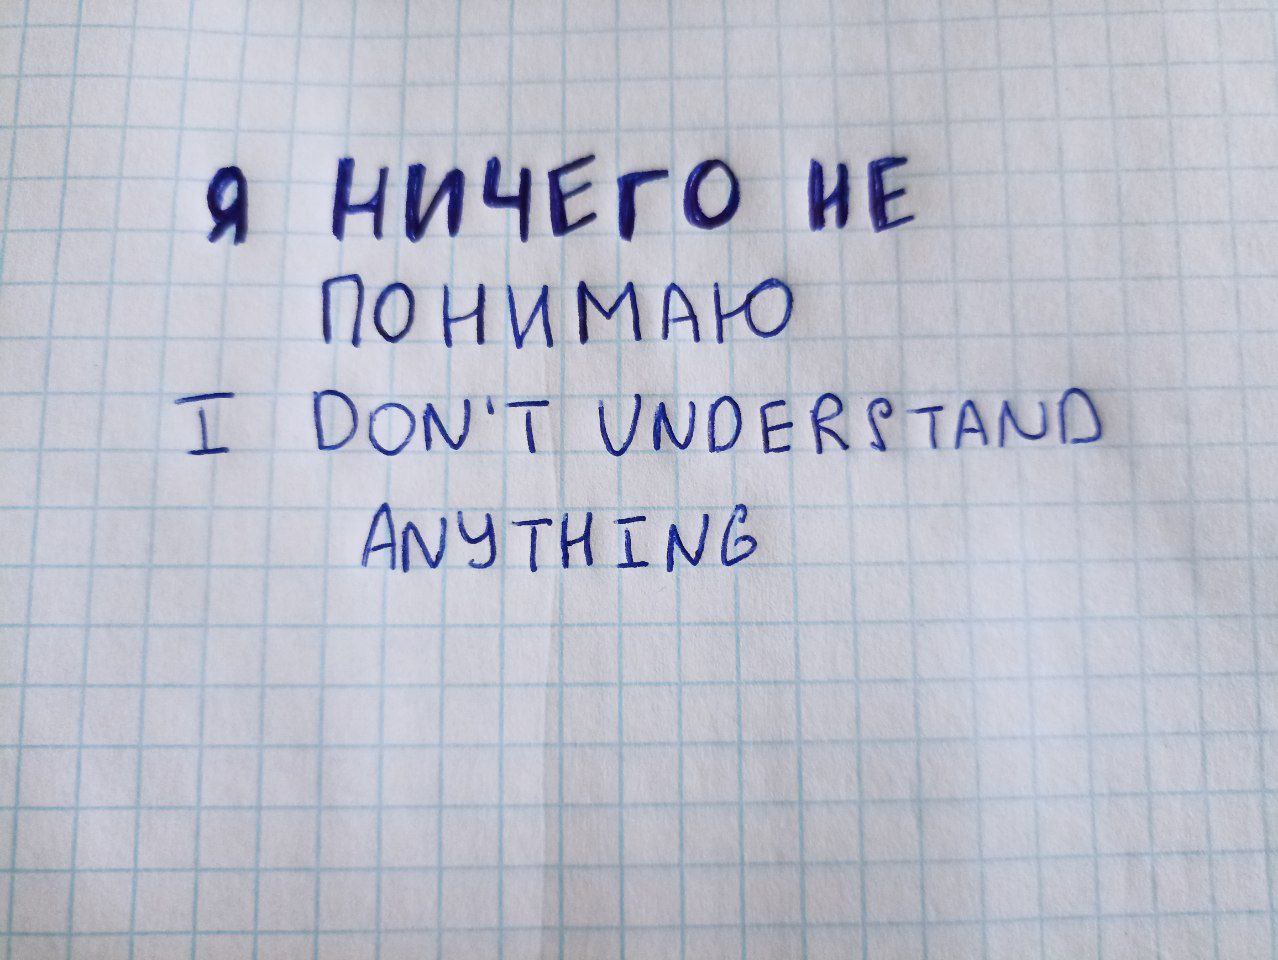 Я НИЧЕГО НЕ
ПОНИМАЮ
I DON'T UNDERSTAND
ANYTHING